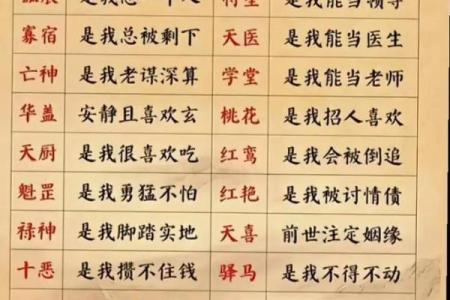 是我总一个人 将星 是我能当领导
寡宿 是我总被剩下 天医 是我能当医生
亡神 是我老谋深算 学堂 是我能当老师
华盖 安静且喜欢玄 桃花 是我招人喜欢
天厨 是我很喜欢吃 红鸾 是我会被倒追
魁罡 是我勇猛不怕 红艳 是我被讨情债
禄神 是我脚踏实地 天喜 前世注定姻缘
十恶 是我攒不住钱 驿马 是我不得不动